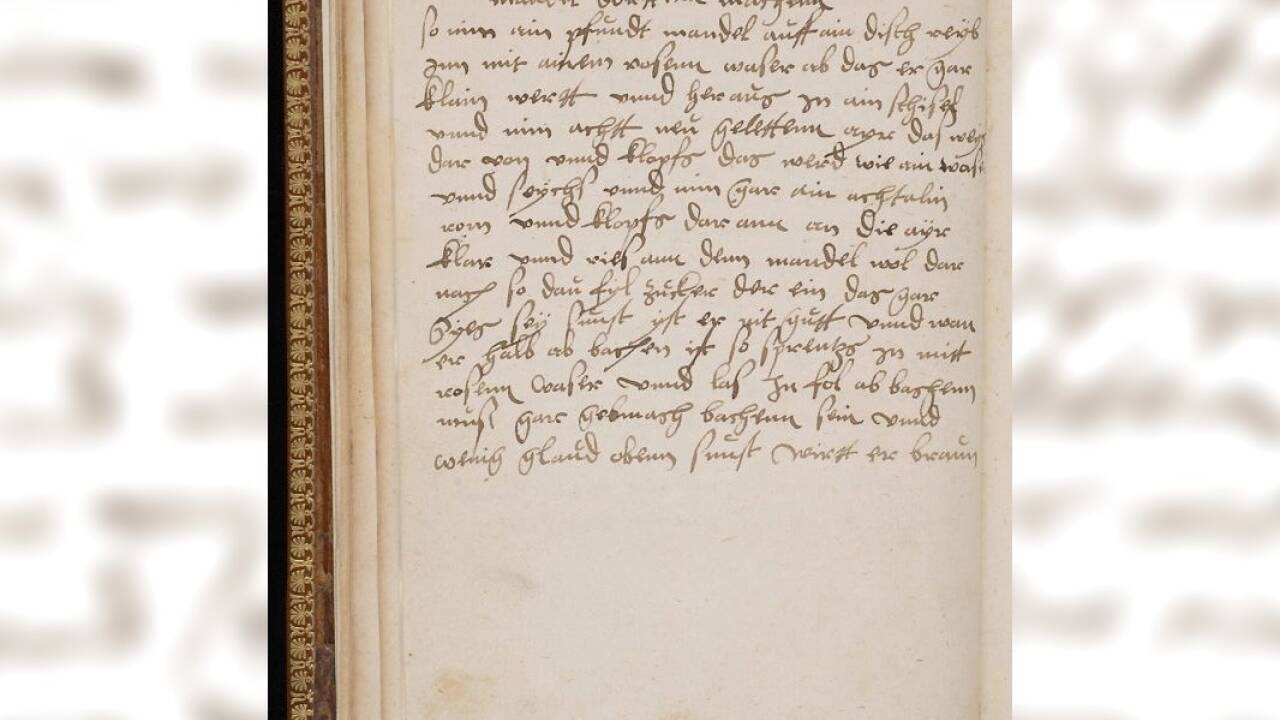 mandel dortten machenn
so nim ain pfundt mandel auff ain disch reyb
Inn mit ainem rosenn waser ab das er gar
klain wertt vnnd heraus In ain schisel
vnnd nim achtt neu gelettenn ayr das weys
dar von vnnd klopfs das werd wie ain waser
vnnd seychs vnnd nim gar ain achtalin
rom vnnd klopfs dar ann an die ayr
klar vnnd riers ann denn mandel wol dar
nach so dau fyl zucker der ein das gar
syes sey sunst yst er nit gutt vnnd wan
er halb ab bachen ist so sprentzs In mitt
rosenn waser vnnd las In fol ab bachenn
mus gar gebmach bachenn sein vnnd
wenig glaud obenn sunst wirtt er braun